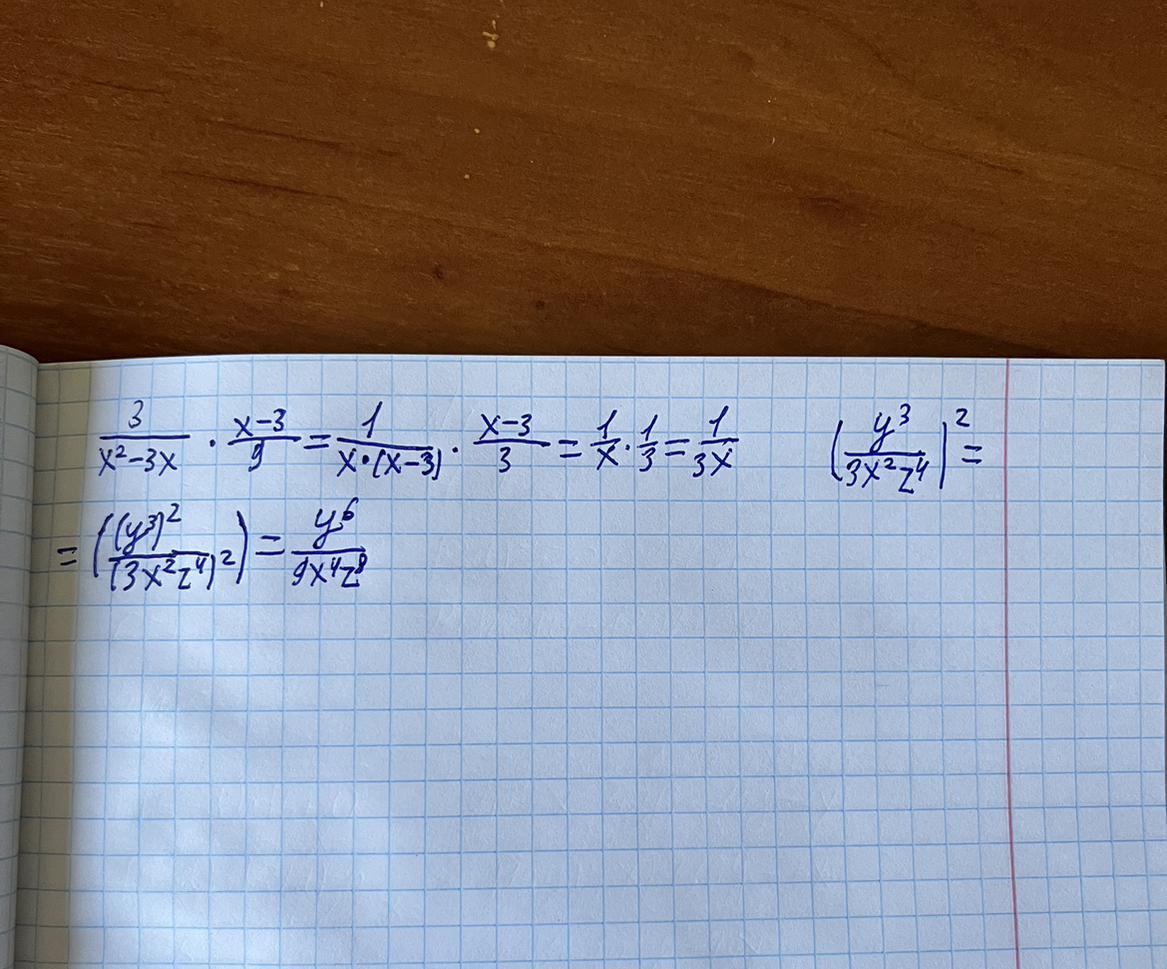 $\frac{3}{x^2-3x} \cdot \frac{x-3}{9} = \frac{1}{x \cdot (x-3)} \cdot \frac{x-3}{3} = \frac{1}{x} \cdot \frac{1}{3} = \frac{1}{3x}$ $\left(\frac{y^3}{3x^2z^4}\right)^2 =$
$= \left(\frac{(y^3)^2}{(3x^2z^4)^2}\right) = \frac{y^6}{9x^4z^8}$